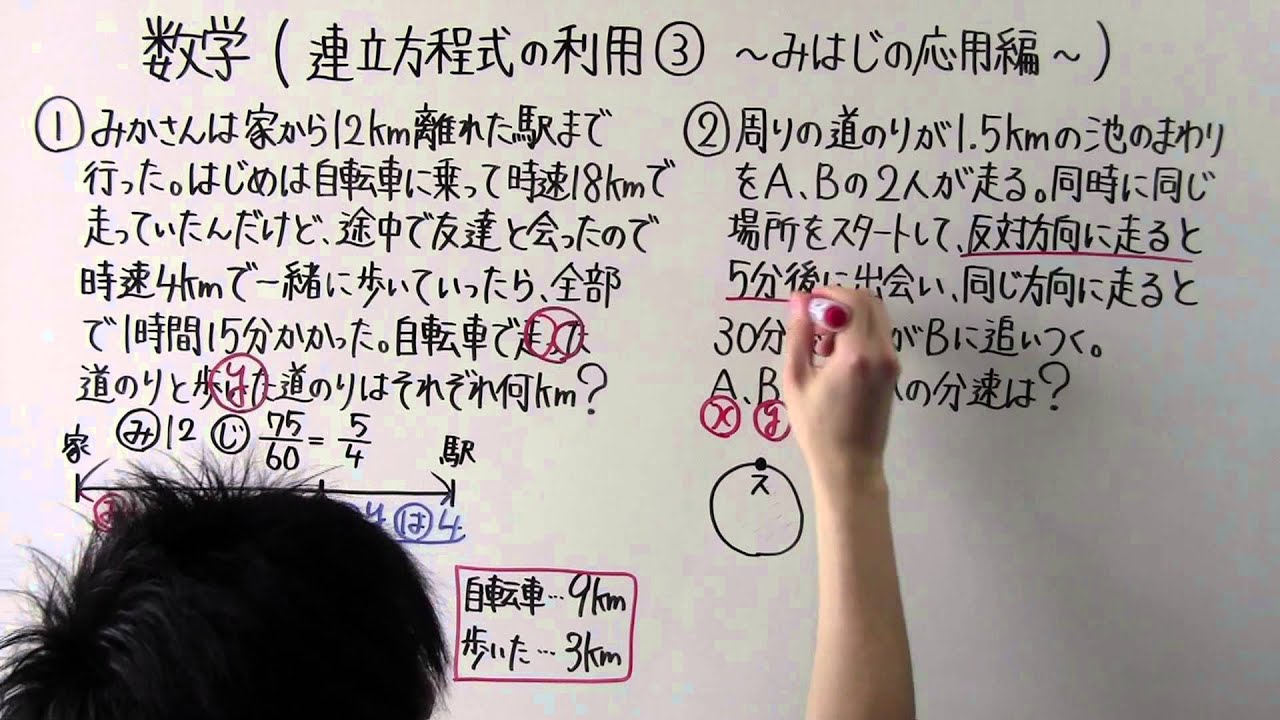 数学(連立方程式の利用③ ～みはじの応用編～)
① みかさんは家から12km離れた駅まで
行った。はじめは自転車に乗って時速18kmで
走っていたんだけど、途中で友達と会ったので
時速4kmで一緒に歩いていったら、全部
で1時間15分かかった。自転車で走った
道のりと歩いた道のりはそれぞれ何km?
x
y
み12 じ 75/60 = 5/4
家 駅
は y は4
自転車…9km
歩いた…3km
② 周りの道のりが1.5kmの池のまわり
をA、Bの2人が走る。同時に同じ
場所をスタートして、反対方向に走ると
5分後に出会い、同じ方向に走ると
30分 がBに追いつく。
A、B の分速は?
x y
ス